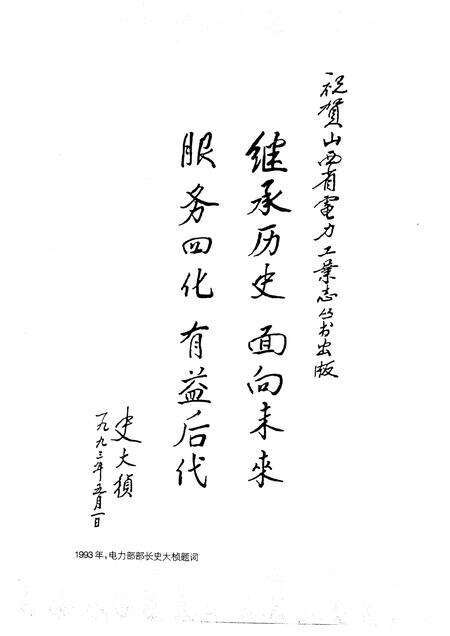 祝贺山西省電力工業志丛书出版
继承历史 面向未來
服务四化 有益后代
史大桢
一九九三年五月一日
1993年，电力部部长史大桢题词